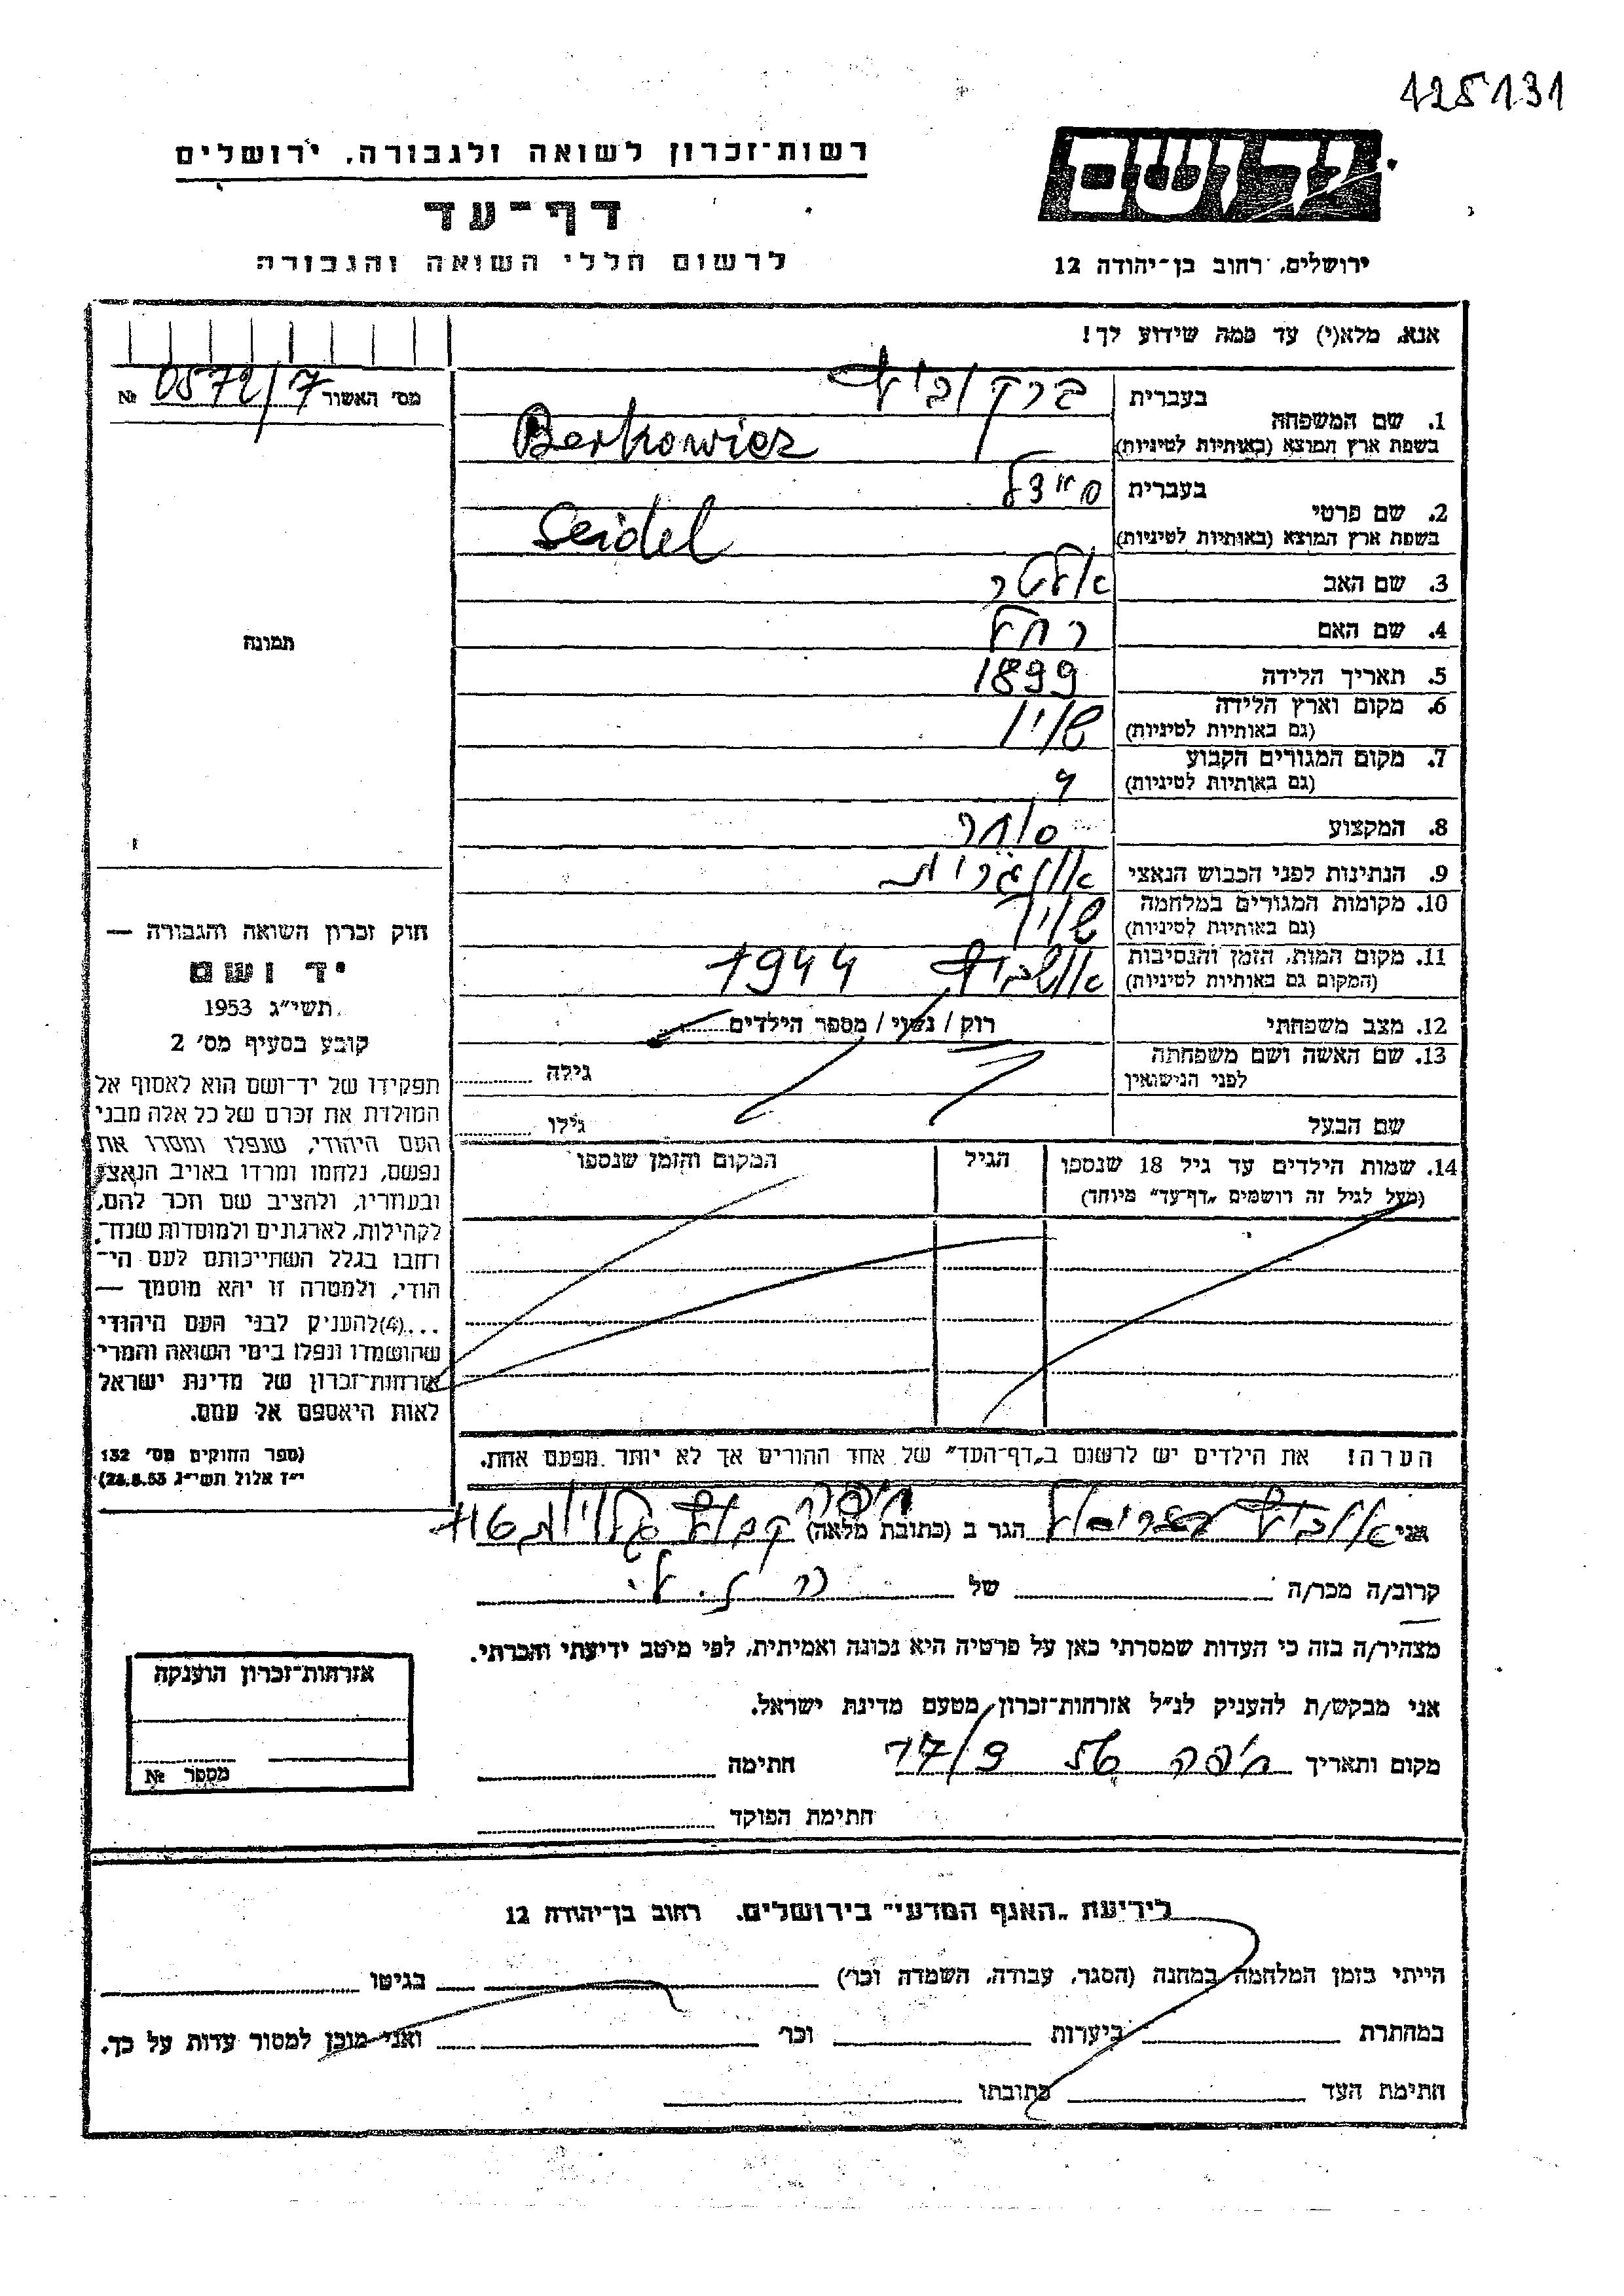 125131
רשות־זכרון לשואה ולגבורה, ירושלים
יד ושם
דף־עד
לרשום חללי השואה והגבורה
ירושלים, רחוב בן־יהודה 12
אנא, מלא(י) עד כמה שידוע לך!
מס׳ האשור 0572/7 №
תמונה
1. שם המשפחה
בעברית ברקוביץ
בשפת ארץ המוצא (באותיות לטיניות) Berkowics
2. שם פרטי
בעברית סיידל
בשפת ארץ המוצא (באותיות לטיניות) Seidel
3. שם האב אלטר
4. שם האם רחל
5. תאריך הלידה 1899
6. מקום וארץ הלידה
(גם באותיות לטיניות)
7. מקום המגורים הקבוע
(גם באותיות לטיניות)
8. המקצוע סוחר
9. הנתינות לפני הכבוש הנאצי
10. מקומות המגורים במלחמה
(גם באותיות לטיניות)
11. מקום המות, הזמן והנסיבות אושביץ 1944
(המקום גם באותיות לטיניות)
12. מצב משפחתי רוק / נשוי / מספר הילדים
13. שם האשה ושם משפחתה
לפני הנישואין
גילה
שם הבעל גילו
14. שמות הילדים עד גיל 18 שנספו
(מעל לגיל זה רושמים „דף־עד״ מיוחד)
הגיל
המקום והזמן שנספו
הערה! את הילדים יש לרשום ב„דף־העד״ של אחד ההורים אך לא יותר מפעם אחת.
חוק זכרון השואה והגבורה —
יד ושם
תשי״ג 1953
קובע בסעיף מס׳ 2
תפקידו של יד־ושם הוא לאסוף אל
המולדת את זכרם של כל אלה מבני
העם היהודי, שנפלו ומסרו את
נפשם, נלחמו ומרדו באויב הנאצי
ובעוזריו, ולהציב שם וזכר להם,
לקהילות, לארגונים ולמוסדות שנח־
רחבו בגלל השתייכותם לעם הי־
הודי, ולמטרה זו יהא מוסמך —
...(4)להעניק לבני העם היהודי
שהושמדו ונפלו בימי השואה והמרי
אזרחות־זכרון של מדינת ישראל
לאות היאספם אל עמם.
(ספר החוקים מס׳ 132
י״ז אלול תשי״ג 28.8.53)
אני הגר ב (כתובת מלאה) חיפה קבוץ גלויות
קרוב/ה מכר/ה של
מצהיר/ה בזה כי העדות שמסרתי כאן על פרטיה היא נכונה ואמיתית, לפי מיטב ידיעתי והכרתי.
אני מבקש/ת להעניק לנ״ל אזרחות־זכרון מטעם מדינת ישראל.
מקום ותאריך חיפה חתימה
חתימת הפוקד
אזרחות־זכרון הוענקה
מספר №
לידיעת „האגף המדעי״ בירושלים. רחוב בן־יהודה 12
הייתי בזמן המלחמה במחנה (הסגר, עבודה, השמדה וכו׳) בגיטו
במחתרת ביערות וכו׳ ואני מוכן למסור עדות על כך.
חתימת העד כתובתו